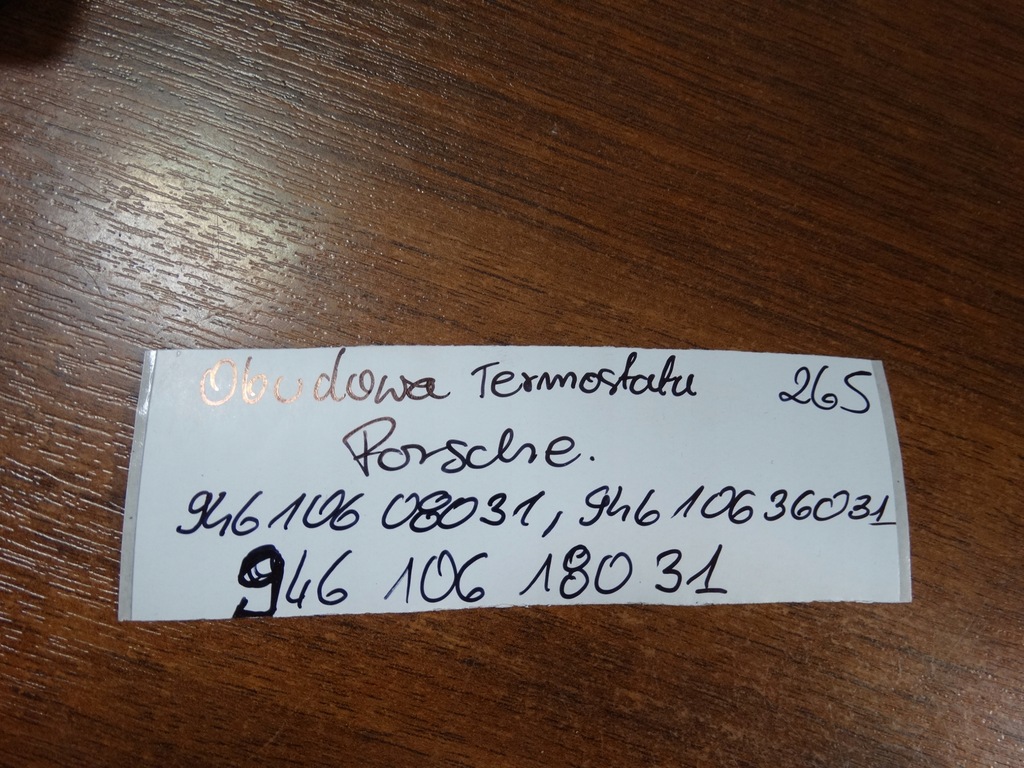 Obudowa Termostatu 265
Porsche.
94610608031, 94610636031
946 106 180 31